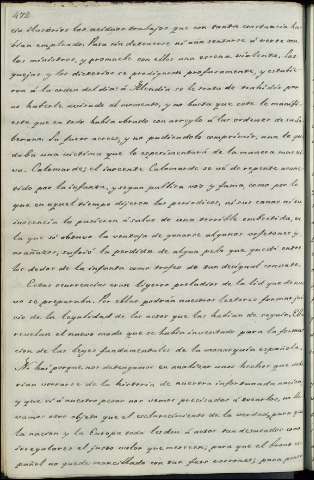 472
en ilusorios los asiduos trabajos que con tanta constancia ha-
bian empleado. Pasa sin detenerse ni aun sentarse a verse con
los ministros, y promueve con ellos una escena violenta. Las
quejas y los dicterios se prodigaron profusamente, y estuvie-
ron a la orden del dia: a Alcudia se le trata de traidor por
no haberle avisado al momento, y no basta que este le manifi-
este que en todo habia obrado con arreglo a las ordenes de su so-
berana. Su furor acrece, y no pudiendolo comprimir, aun le que-
daba una victima que lo esperimentará de la manera mas vi-
va. Calomarde; el inocente Calomarde se vé de repente acome-
tido por la infanta, y segun publica voz y fama, como por lo
que en aquel tiempo dijeron los periodicos, ni sus canas ni su
inocencia le pusieron á salvo de una terrible embestida, en
la que si obtuvo la ventaja de ganarse algunos bofetones y
arañazos, sufrió la perdida de algun pelo que quedó entre
los dedos de la infanta como trofeo de tan desigual combate.
Estas ocurrencias eran ligeros preludios de la lid que de nue-
vo se preparaba. Por ellas podrán nuestros lectores formar jui-
cio de la legalidad de los actos que las habian de seguir. Ellas
revelan el nuevo modo que se habia inventado para la forma-
cion de las leyes fundamentales de la monarquia española.
No hai porque nos detengamos en analizar unos hechos que debe-
rian borrarse de la historia de nuestra infortunada nacion,
y que si á nuestro pesar nos vemos precisados á tocarlos, no lle-
vamos otro objeto que el esclarecimiento de la verdad, para que
la nacion y la Europa toda lleden á actos tan desnudos como
irregulares el justo valor que merecen; para que el buen es-
pañol no quede mancillado con tan feos borrones; para que